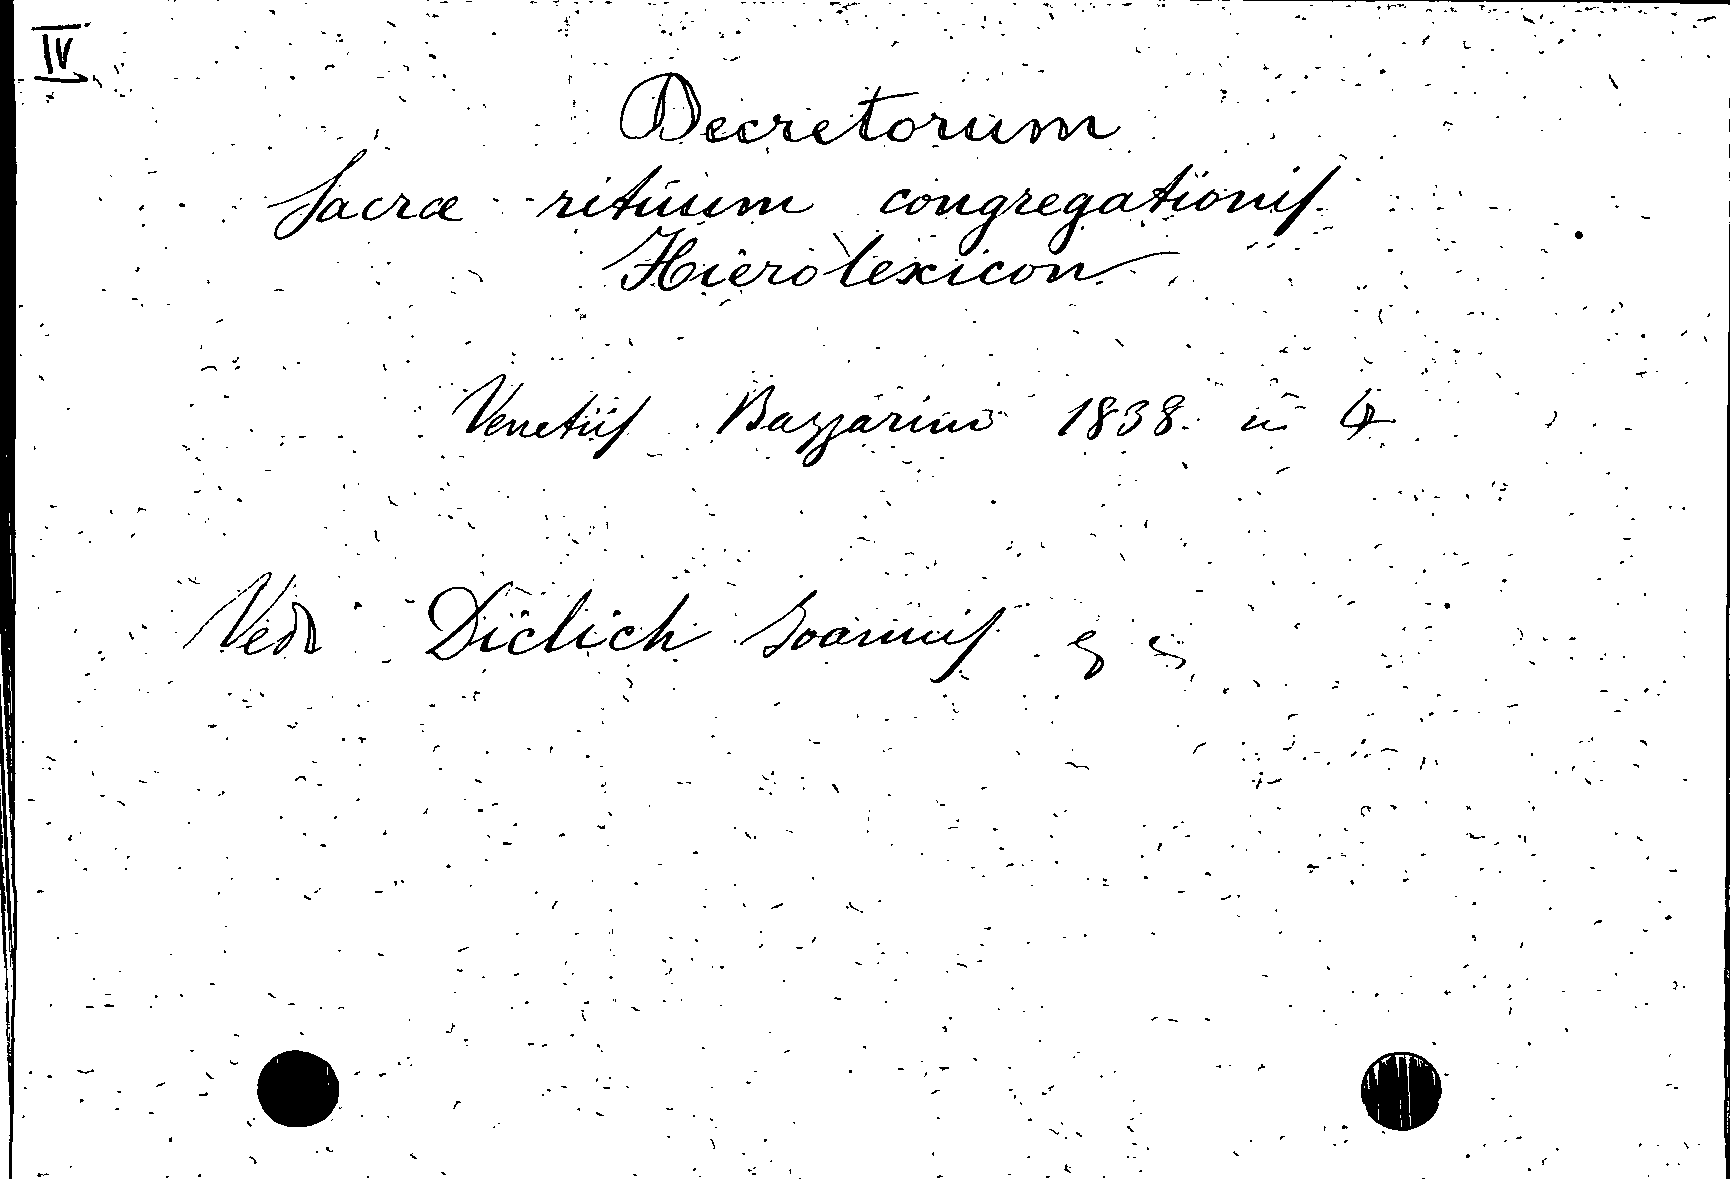 IV
Decretorum
Sacræ rituum congregationis
Hierolexicon
Venetiis Bazzarini 1838 in 4
Vedi Diclich Joannis